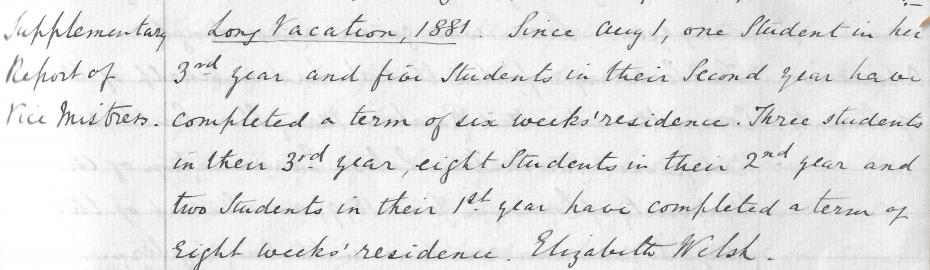 Supplementary Long Vacation, 1881. Since Aug 1, one Student in her
Report of 3rd year and five Students in their Second year have
Vice Mistress. completed a term of six weeks' residence. Three students
in their 3rd year, eight Students in their 2nd year and
two Students in their 1st year have completed a term of
Eight weeks' residence. Elizabeth Welsh.